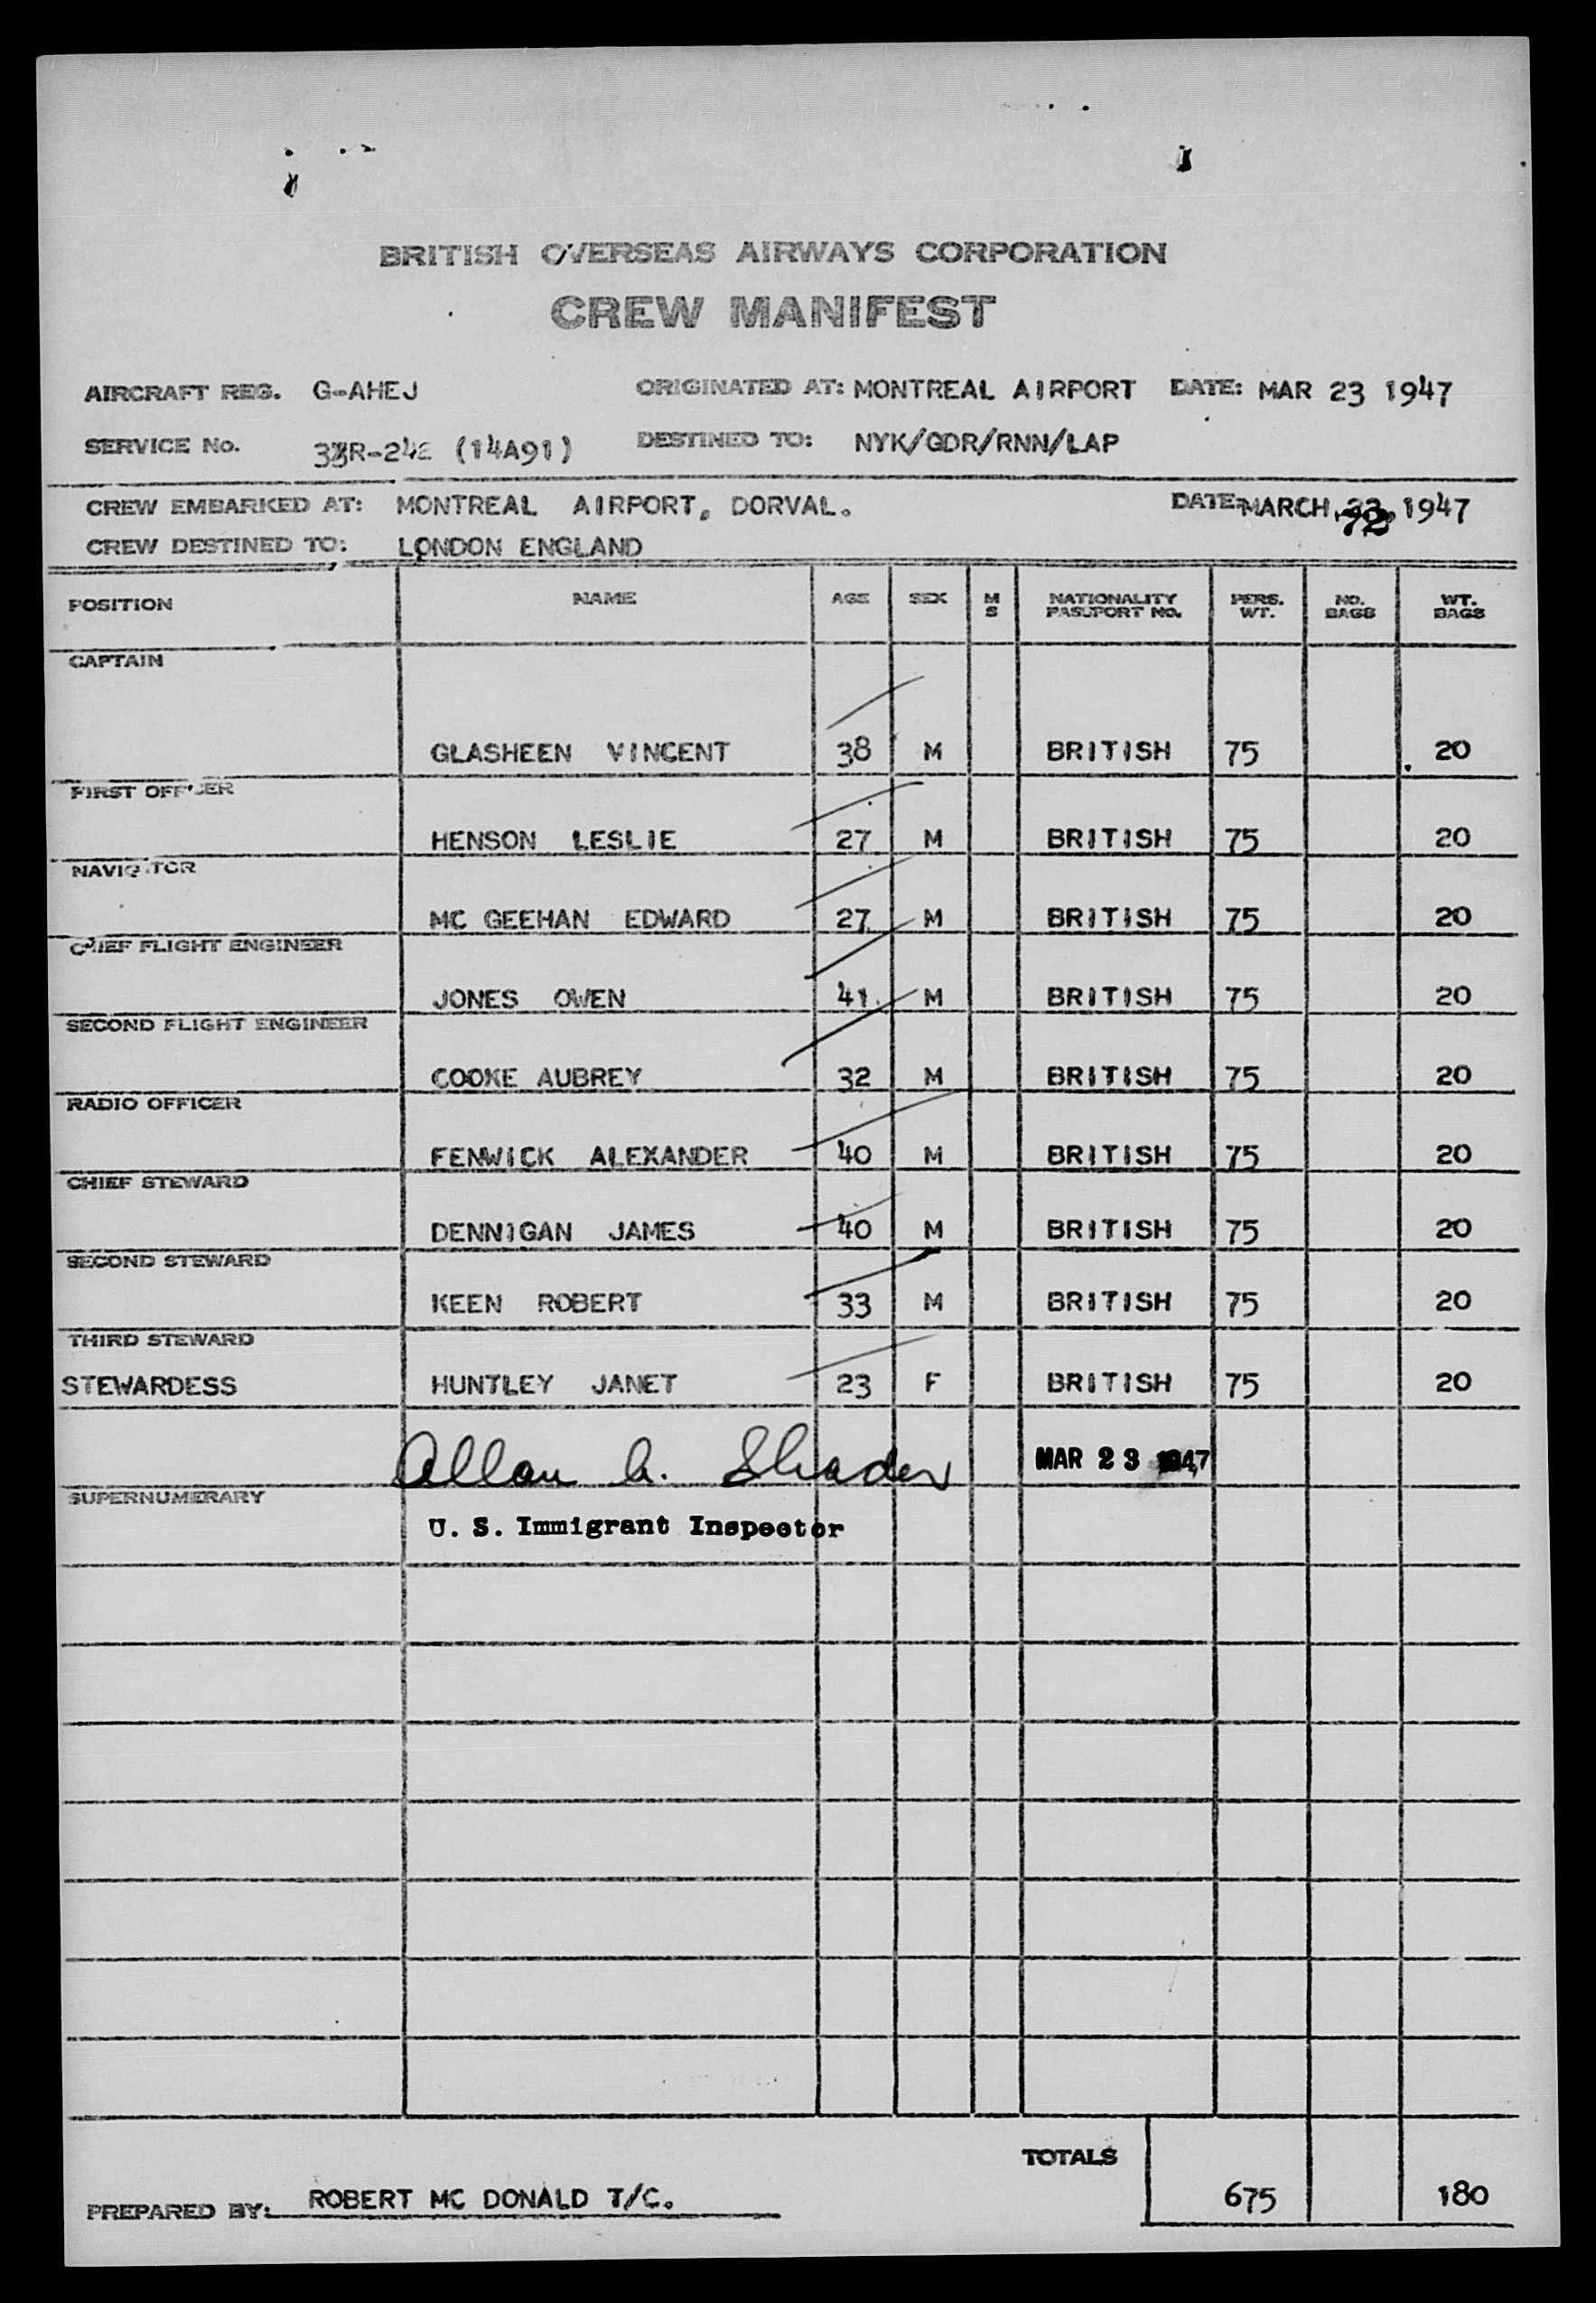 BRITISH OVERSEAS AIRWAYS CORPORATION
CREW MANIFEST
AIRCRAFT REG. G-AHEJ ORIGINATED AT: MONTREAL AIRPORT DATE: MAR 23 1947
SERVICE No. (14A91) DESTINED TO: NYK/GDR/RNN/LAP
CREW EMBARKED AT: MONTREAL AIRPORT, DORVAL. DATE: MARCH 1947
CREW DESTINED TO: LONDON ENGLAND
POSITION NAME AGE SEX M S NATIONALITY PASSPORT NO. PERS. WT. NO. BAGS WT. BAGS
CAPTAIN
GLASHEEN VINCENT 38 M BRITISH 75 20
FIRST OFFICER
HENSON LESLIE 27 M BRITISH 75 20
NAVIGATOR
MC GEEHAN EDWARD 27 M BRITISH 75 20
CHIEF FLIGHT ENGINEER
JONES OWEN 41 M BRITISH 75 20
SECOND FLIGHT ENGINEER
COOKE AUBREY 32 M BRITISH 75 20
RADIO OFFICER
FENWICK ALEXANDER 40 M BRITISH 75 20
CHIEF STEWARD
DENNIGAN JAMES 40 M BRITISH 75 20
SECOND STEWARD
KEEN ROBERT 33 M BRITISH 75 20
THIRD STEWARD
STEWARDESS HUNTLEY JANET 23 F BRITISH 75 20
Allan MAR 23 1947
SUPERNUMERARY
U. S. Immigrant Inspector
TOTALS
PREPARED BY: ROBERT MC DONALD T/C. 675 180